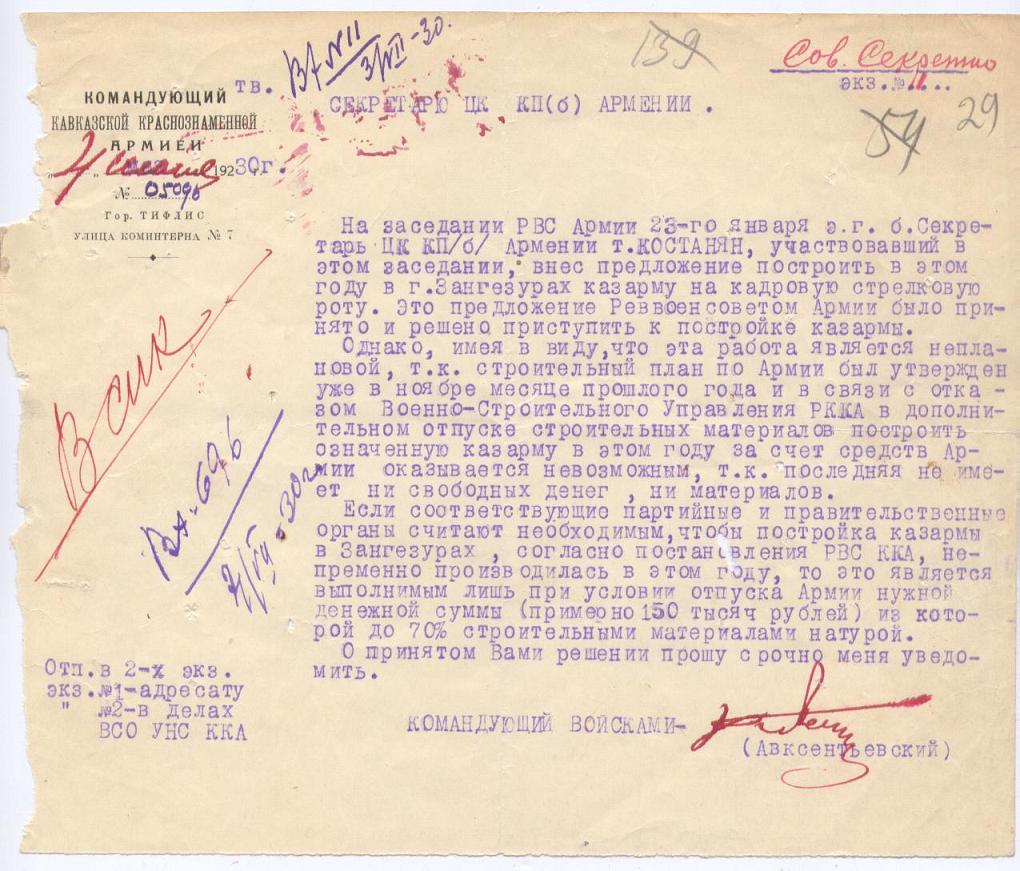 ВА №11
3/VII-30.
139
Сов. Секретно
экз.№ 11...
54
29
тв.
КОМАНДУЮЩИЙ
КАВКАЗСКОЙ КРАСНОЗНАМЕННОЙ
АРМИЕЙ
СЕКРЕТАРЮ ЦК КП(б) АРМЕНИИ .
192 30г.
№ 05096
Гор. ТИФЛИС
УЛИЦА КОМИНТЕРНА № 7
На заседании РВС Армии 23-го января э.г. б.Секре-
тарь ЦК КП/б/ Армении т.КОСТАНЯН, участвовавший в
этом заседании, внес предложение построить в этом
году в г.Зангезурах казарму на кадровую стрелковую
роту. Это предложение Реввоенсоветом Армии было при-
нято и решено приступить к постройке казармы.
Однако, имея в виду,что эта работа является непла-
новой, т.к. строительный план по Армии был утвержден
уже в ноябре месяце прошлого года и в связи с отка -
зом Военно-Строительного Управления РККА в дополни-
тельном отпуске строительных материалов построить
означенную казарму в этом году за счет средств Ар-
мии оказывается невозможным, т.к. последняя не име-
ет ни свободных денег , ни материалов.
Если соответствующие партийные и правительственные
органы считают необходимым,чтобы постройка казармы
в Зангезурах , согласно постановления РВС ККА, не-
пременно производилась в этом году, то это является
выполнимым лишь при условии отпуска Армии нужной
денежной суммы (примерно 150 тысяч рублей) из кото-
рой до 70% строительными материалами натурой.
О принятом Вами решении прошу срочно меня уведо-
мить.
Отп.в 2-х экз.
экз.№1-адресату
" №2-в делах
ВСО УНС ККА
КОМАНДУЮЩИЙ ВОЙСКАМИ-
(Авксентьевский)